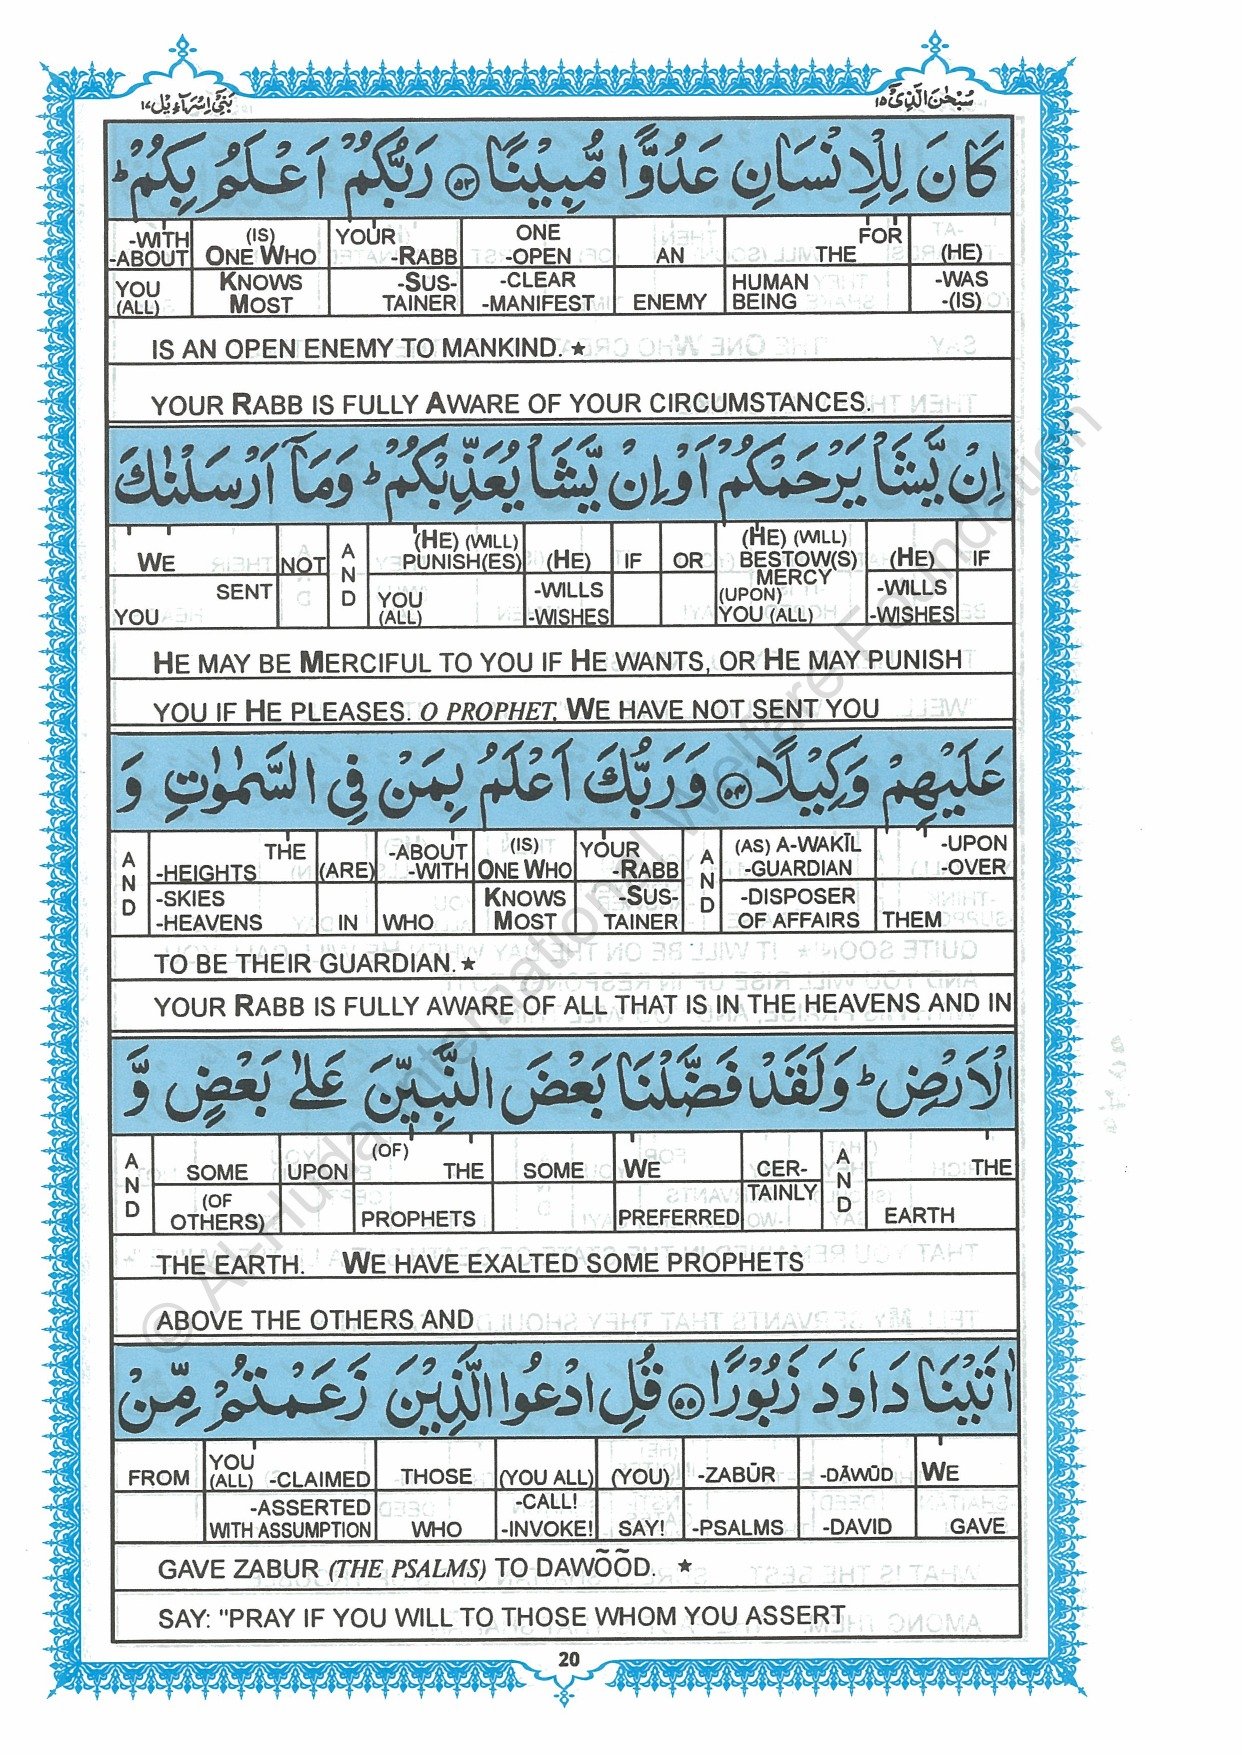 بَنِيْٓ اِسْرَآءِيْل ١٧
سُبْحٰنَ الَّذِيْٓ ١٥
كَانَ لِلْاِنْسَانِ عَدُوًّا مُّبِيْنًا ۝٥٣ رَبُّكُمْ اَعْلَمُ بِكُمْ ؕ
-WITH (IS) YOUR ONE FOR
-ABOUT ONE WHO -RABB -OPEN AN THE (HE)
YOU KNOWS -SUS- -CLEAR HUMAN -WAS
(ALL) MOST TAINER -MANIFEST ENEMY BEING -(IS)
IS AN OPEN ENEMY TO MANKIND. ★
YOUR RABB IS FULLY AWARE OF YOUR CIRCUMSTANCES.
اِنْ يَّشَاْ يَرْحَمْكُمْ اَوْ اِنْ يَّشَاْ يُعَذِّبْكُمْ ؕ وَمَاۤ اَرْسَلْنٰكَ
WE NOT AND (HE) (WILL) PUNISH(ES) (HE) IF OR (HE) (WILL) BESTOW(S) (HE) IF
SENT YOU -WILLS MERCY (UPON) -WILLS
YOU (ALL) -WISHES YOU (ALL) -WISHES
HE MAY BE MERCIFUL TO YOU IF HE WANTS, OR HE MAY PUNISH
YOU IF HE PLEASES. O PROPHET, WE HAVE NOT SENT YOU
عَلَيْهِمْ وَكِيْلًا ۝٥٤ وَرَبُّكَ اَعْلَمُ بِمَنْ فِي السَّمٰوٰتِ وَ
AND THE -ABOUT (IS) YOUR AND (AS) A-WAKĪL -UPON
-HEIGHTS (ARE) -WITH ONE WHO -RABB -GUARDIAN -OVER
-SKIES KNOWS -SUS- -DISPOSER
-HEAVENS IN WHO MOST TAINER OF AFFAIRS THEM
TO BE THEIR GUARDIAN. ★
YOUR RABB IS FULLY AWARE OF ALL THAT IS IN THE HEAVENS AND IN
الْاَرْضِ ؕ وَلَقَدْ فَضَّلْنَا بَعْضَ النَّبِيّٖنَ عَلٰى بَعْضٍ وَّ
AND SOME UPON (OF) THE SOME WE CER- AND THE
(OF OTHERS) PROPHETS PREFERRED TAINLY EARTH
THE EARTH. WE HAVE EXALTED SOME PROPHETS
ABOVE THE OTHERS AND
اٰتَيْنَا دَاوٗدَ زَبُوْرًا ۝٥٥ قُلِ ادْعُوا الَّذِيْنَ زَعَمْتُمْ مِّنْ
FROM YOU (ALL) -CLAIMED THOSE (YOU ALL) (YOU) -ZABŪR -DĀWŪD WE
-ASSERTED -CALL!
WITH ASSUMPTION WHO -INVOKE! SAY! -PSALMS -DAVID GAVE
GAVE ZABUR (THE PSALMS) TO DAWÕÕD. ★
SAY: "PRAY IF YOU WILL TO THOSE WHOM YOU ASSERT
20
© Al-Huda International Welfare Foundation